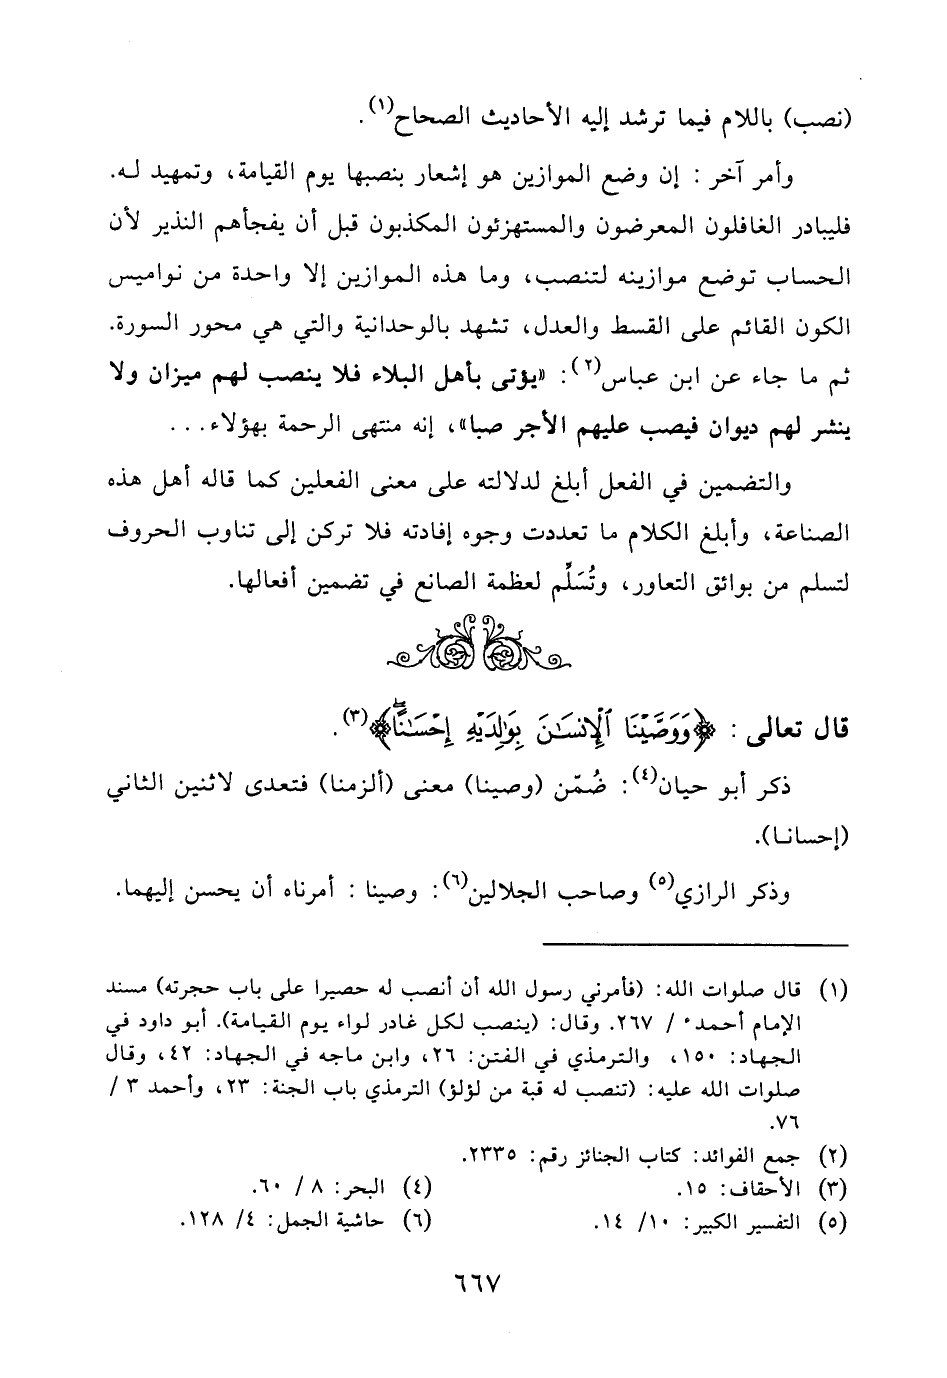 (نصب) باللام فيما ترشد إليه الأحاديث الصحاح(١).
وأمر آخر : إن وضع الموازين هو إشعار بنصبها يوم القيامة، وتمهيد له.
فليبادر الغافلون المعرضون والمستهزئون المكذبون قبل أن يفجأهم النذير لأن
الحساب توضع موازينه لتنصب، وما هذه الموازين إلا واحدة من نواميس
الكون القائم على القسط والعدل، تشهد بالوحدانية والتي هي محور السورة.
ثم ما جاء عن ابن عباس(٢): «يؤتى بأهل البلاء فلا ينصب لهم ميزان ولا
ينشر لهم ديوان فيصب عليهم الأجر صبا»، إنه منتهى الرحمة بهؤلاء...
والتضمين في الفعل أبلغ لدلالته على معنى الفعلين كما قاله أهل هذه
الصناعة، وأبلغ الكلام ما تعددت وجوه إفادته فلا تركن إلى تناوب الحروف
لتسلم من بوائق التعاور، وتُسَلِّم لعظمة الصانع في تضمين أفعالها.
قال تعالى : ﴿وَوَصَّيْنَا ٱلْإِنسَٰنَ بِوَٰلِدَيْهِ إِحْسَٰنًا ۖ﴾(٣).
ذكر أبو حيان(٤): ضُمّن (وصينا) معنى (ألزمنا) فتعدى لاثنين الثاني
(إحسانا).
وذكر الرازي(٥) وصاحب الجلالين(٦): وصينا : أمرناه أن يحسن إليهما.
(١) قال صلوات الله: (فأمرني رسول الله أن أنصب له حصيرا على باب حجرته) مسند
الإمام أحمد ٠ / ٢٦٧. وقال: (ينصب لكل غادر لواء يوم القيامة). أبو داود في
الجهاد: ١٥٠، والترمذي في الفتن: ٢٦، وابن ماجه في الجهاد: ٤٢، وقال
صلوات الله عليه: (تنصب له قبة من لؤلؤ) الترمذي باب الجنة: ٢٣، وأحمد ٣ /
٧٦.
(٢) جمع الفوائد: كتاب الجنائز رقم: ٢٣٣٥.
(٣) الأحقاف: ١٥. (٤) البحر: ٨ / ٦٠.
(٥) التفسير الكبير: ١٠/ ١٤. (٦) حاشية الجمل: ٤/ ١٢٨.
٦٦٧